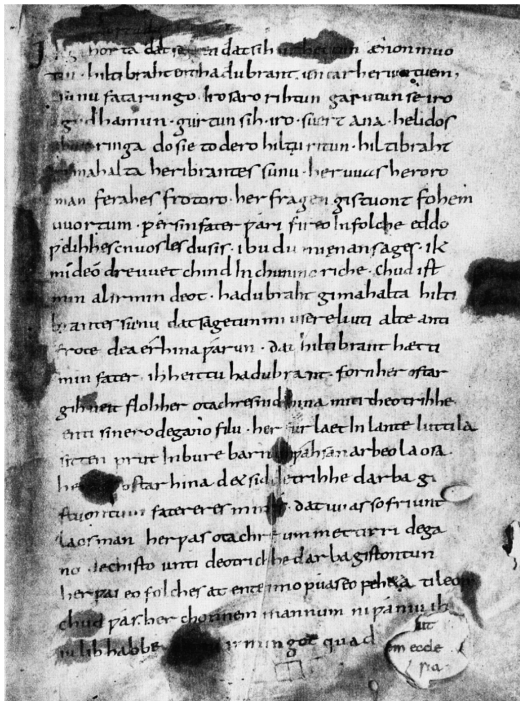 horta dat seggen dat sih urhettun ænon muo
tin · hiltibraht enti hadubrant · untar heriun tuem,
sunu fatarungo · iro saro rihtun garutun se iro
gudhamun · gurtun sih · iro · suert ana · helidos
ringa do sie to dero hiltu ritun · hiltibraht
gimahalta heribrantes sunu · her uuas heroro
man ferahes frotoro · her fragen gistuont fohem
uuortum · ƿer sin fater ƿari fireo In folche eddo
ƿelihhes cnuosles du sis · ibu du mi enan sages · ik
mi deo dre uuet chind In chunincriche · chud ist
min al irmin deot · hadubraht gimahalta hilti
brantes sunu dat sagetun mi usere liuti alte anti
frote dea érhina ƿarun · dat hiltibrant hætti
min fater · ih heittu hadubrant · forn her ostar
gihueit floh her otachres nid hina miti theotrihhe
enti sinero degano filu · her furlaet In lante luttila
sitten prut In bure barn unƿahsan arbeo laosa ·
ostar hina det sid detrihhe darba gi
stuontum fatereres mines · dat uuas so friunt
laos man her ƿas otachre ummettirri dega
no · dechisto unti deotrichhe darba gistontun
her ƿas eo folches at ente imo ƿuas eo peheta ti leop
chud ƿas her chonnem mannum ni ƿaniu ih
iu lib habbe irmingot quad